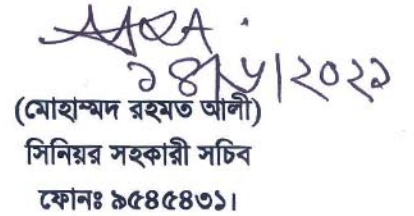 (মোহাম্মদ রহমত আলী)
সিনিয়র সহকারী সচিব
ফোনঃ ৯৫৪৫৪৩১।